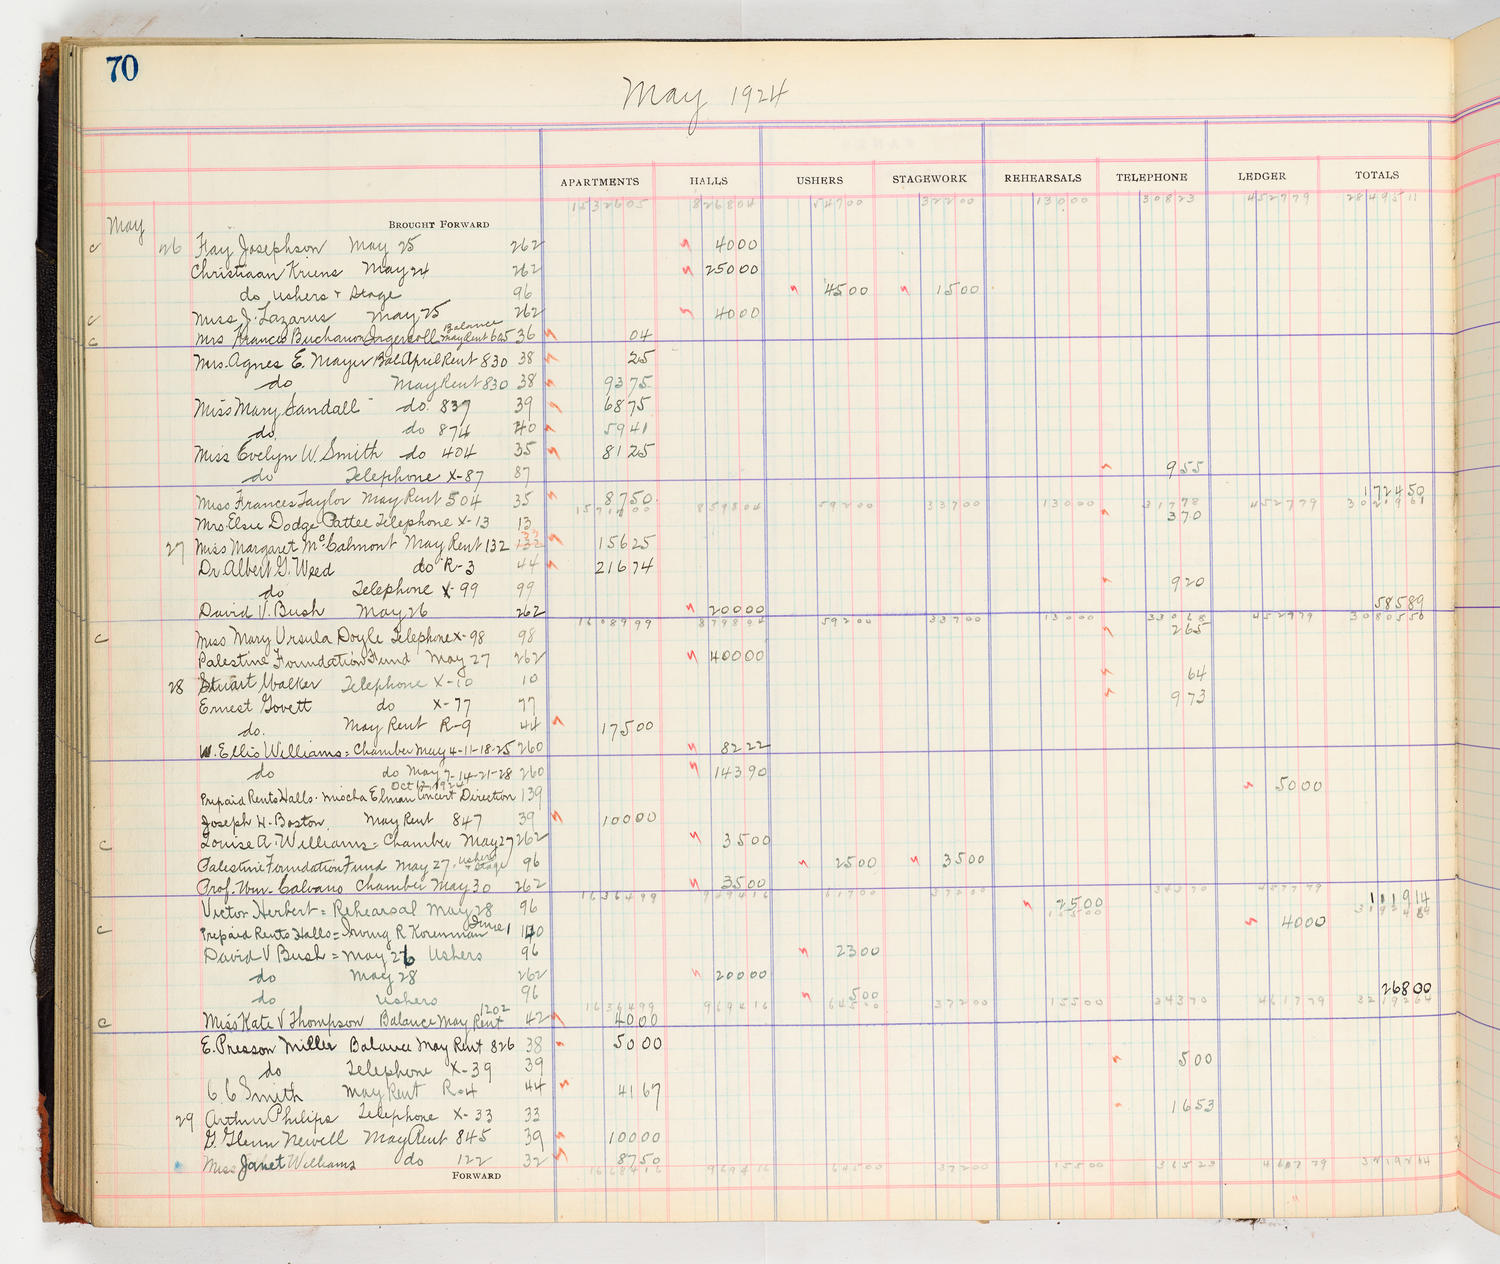 70
May 1924
APARTMENTS HALLS USHERS STAGEWORK REHEARSALS TELEPHONE LEDGER TOTALS
1532605 826804 54700 32200 13000 30823 452779 2849511
May BROUGHT FORWARD
c 26 Fay Josephson May 25 262 4000
Christiaan Kriens May 24 262 25000
do Ushers + Stage 96 4500 1500
c Miss J. Lazarus May 25 262 4000
c Mrs Frances Buchanan Ingersoll Balance May Rent 605 36 04
Mrs. Agnes E. Mayer Bal April Rent 830 38 25
do May Rent 830 38 9375
Miss Mary Sandall do 837 39 6875
do do 874 40 5941
Miss Evelyn W. Smith do 404 35 8125
do Telephone X-87 87 955
Miss Frances Taylor May Rent 504 35 8750 172450
859804 59200 33700 13000 31778 452779 3021961
Mrs. Elsie Dodge Pattee Telephone X-13 13 370
27 Miss Margaret McCalmont May Rent 132 15625
Dr. Albert G. Weed do R-3 44 21674
do Telephone X-99 99 920
David V. Bush May 26 262 20000 58589
1608999 879804 59200 33700 13000 33068 452779 3080550
c Miss Mary Ursula Doyle Telephone X-98 98 265
Palestine Foundation Fund May 27 262 40000
28 Stuart Walker Telephone X-10 10 64
Ernest Govett do X-77 77 973
do. May Rent R-9 44 17500
W. Ellis Williams = Chamber May 4-11-18-25 260 8222
do do May 7-14-21-28 260 14390
Prepaid Rents Halls. Mischa Elman Concert Direction Oct 12, 1924 139 5000
Joseph H. Boston. May Rent 847 39 10000
c Louise A. Williams = Chamber May 27 262 3500
Palestine Foundation Fund May 27. Ushers + Stage 96 2500 3500
Prof. Wm. Calvano Chamber May 30 262 3500
1636499 61700 37200 34370 457779
Victor Herbert = Rehearsal May 28 96 2500 111914
15500 3192464
c Prepaid Rents Halls = Irving R Korenman June 1 4000
David V Bush = May 26 Ushers 96 2300
do May 28 262 20000
do Ushers 96 500 26800
1636499 969416 64500 37200 15500 34370 461779 3219264
c Miss Kate V Thompson Balance May Rent 1202 42 4000
E. Presson Miller Balance May Rent 826 38 5000
do Telephone X-39 39 500
C C Smith May Rent R-4 44 4167
29 Arthur Philips Telephone X-33 33 1653
G. Glenn Newell May Rent 845 39 10000
Miss Janet Williams do 122 32 8750
FORWARD 1668416 969416 64500 37200 15500 36523 461779 3219264